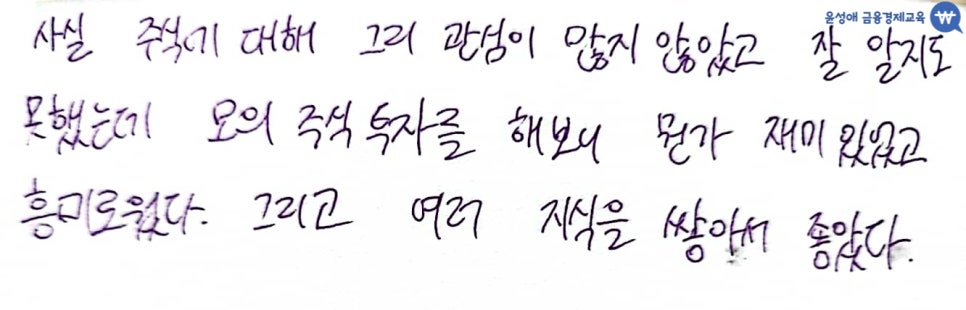 윤성애 금융경제교육
사실 주식에 대해 그리 관심이 많지 않았고 잘 알지도
못했는데 모의 주식 투자를 해보니 뭔가 재미 있었고
흥미로웠다. 그리고 여러 지식을 쌓아서 좋았다.